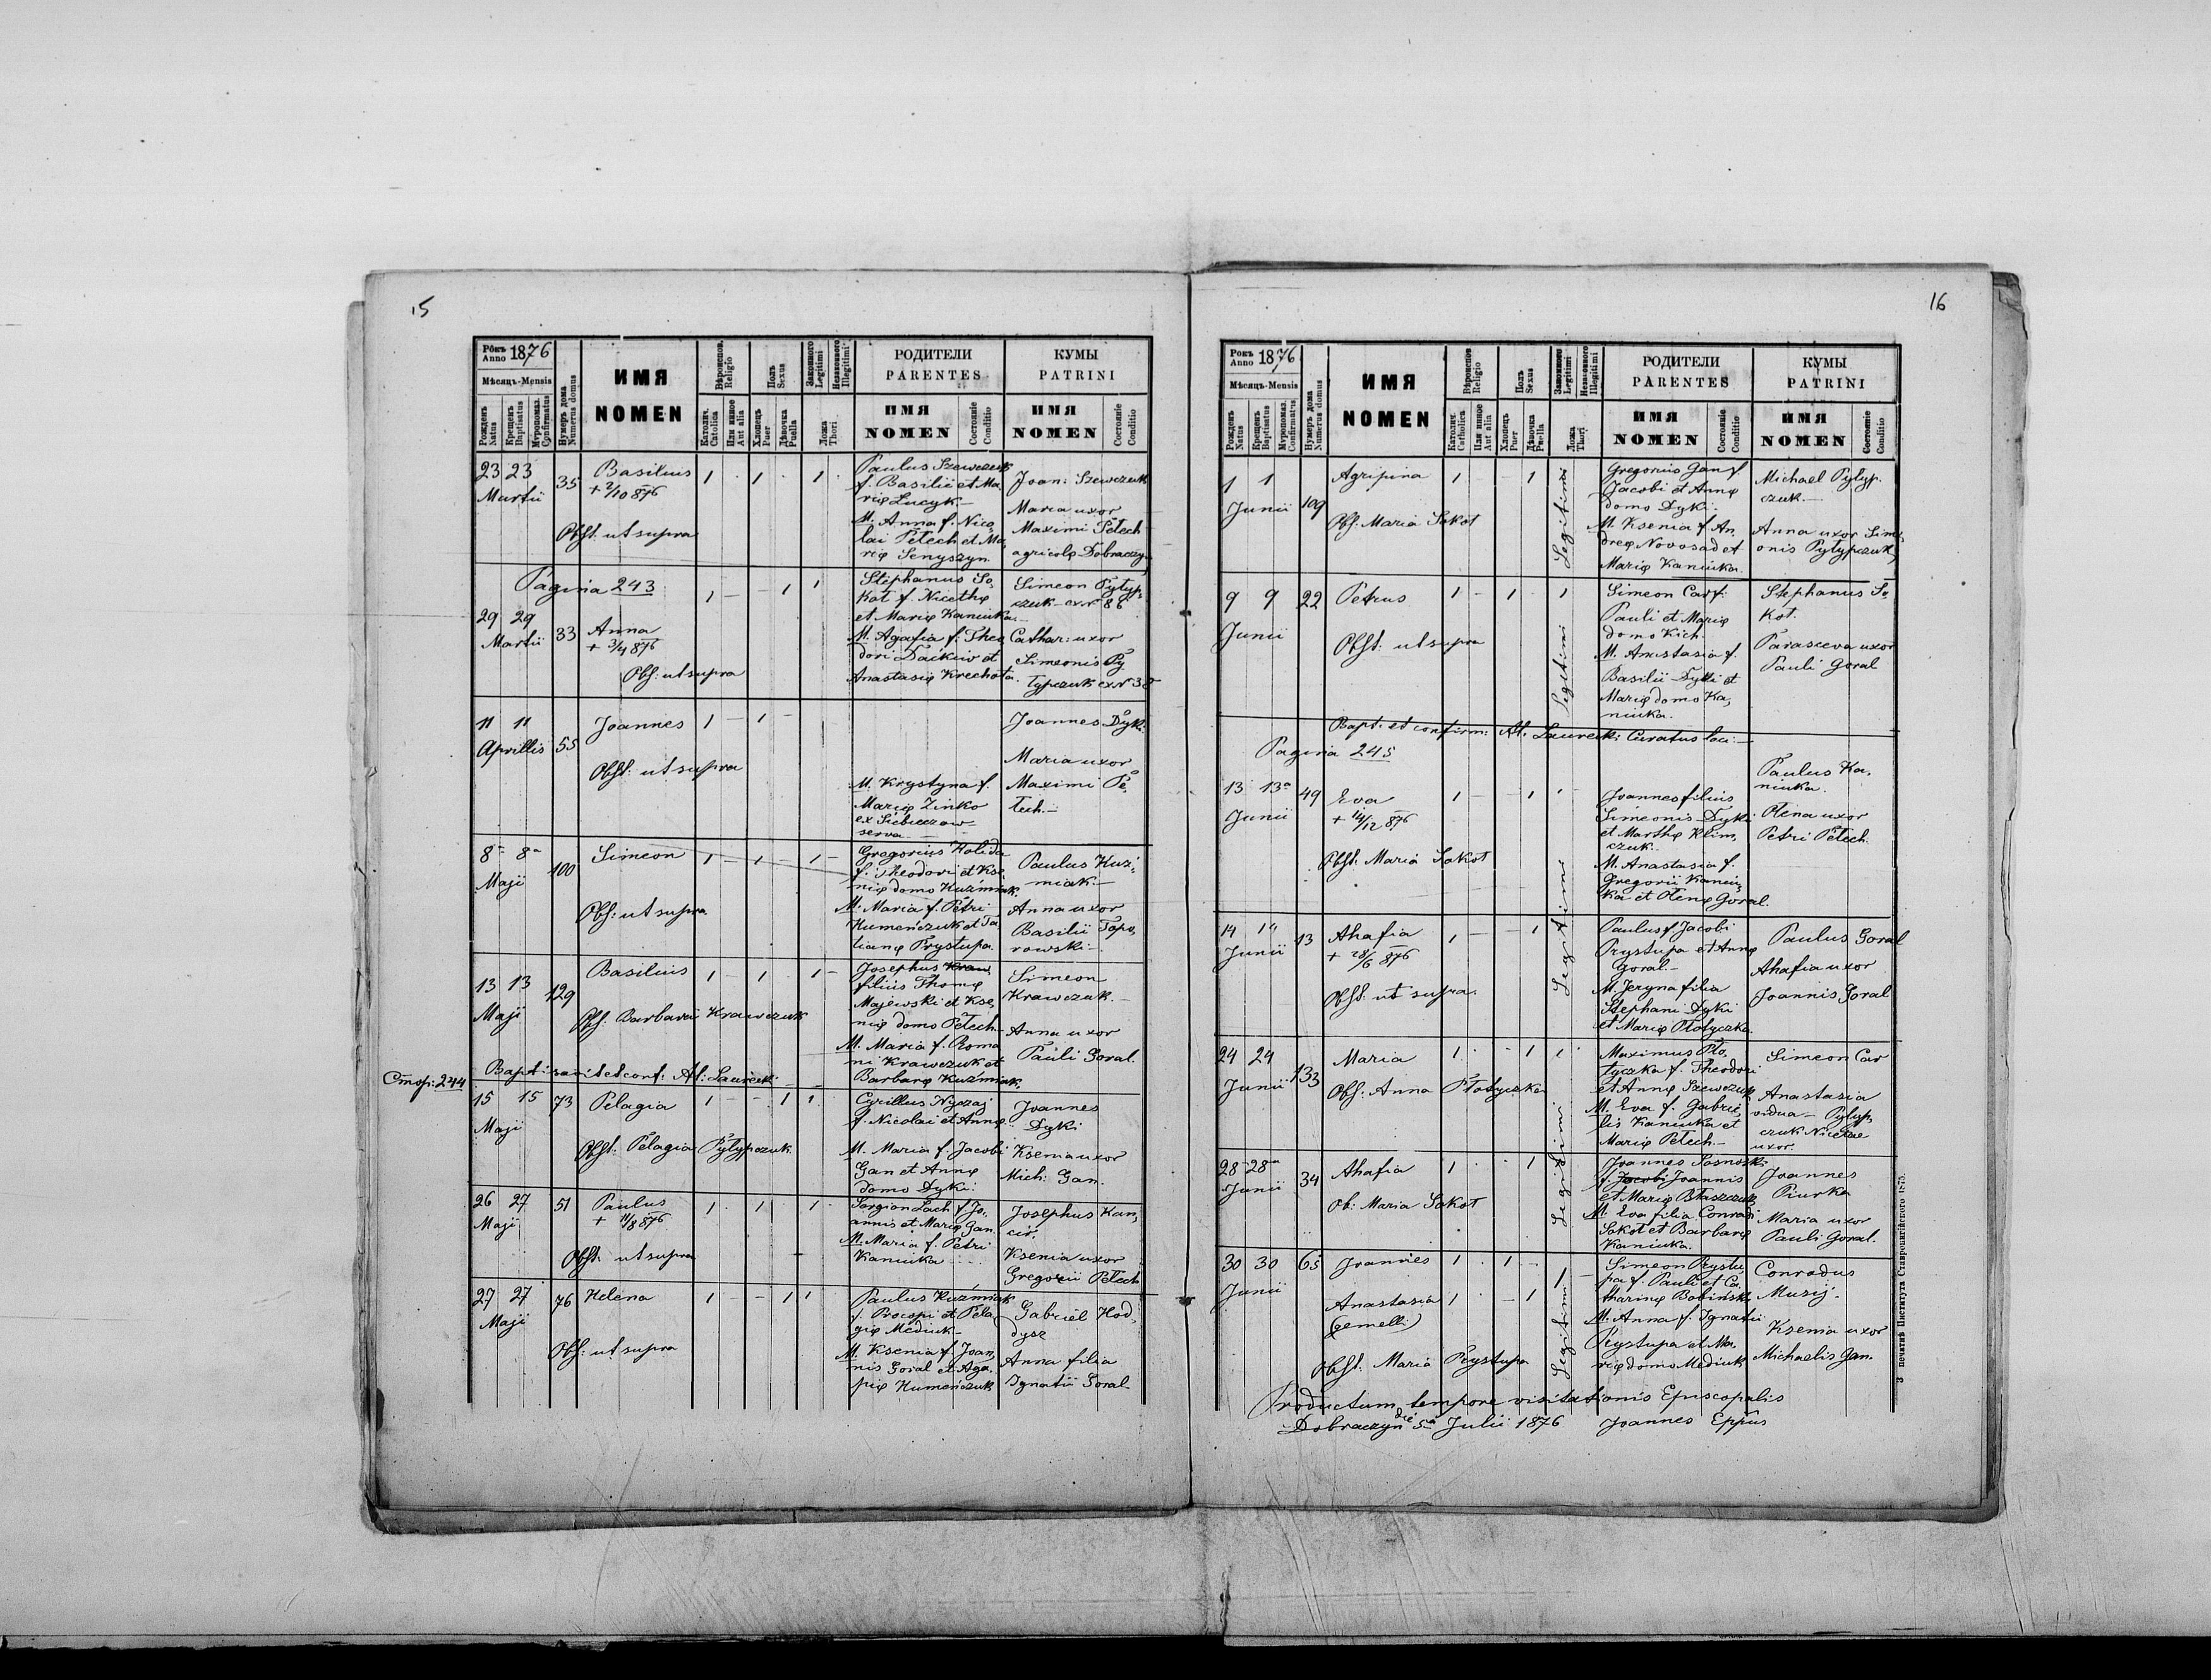 15
Рôкъ Anno 1876
Мѣсяцъ-Mensis
Рожденъ Natus
Крещенъ Baptisatus
Мѵропомаз. Confirmatus
Нумеръ дома Numerus domus
ИМЯ
NOMEN
Вѣроиспов. Religio
Католич. Catolica
Или инное Aut alia
Полъ Sexus
Хлопець Puer
Дѣвочка Puella
Законного Legitimi
Незаконного Illegitimi
Ложа Thori
РОДИТЕЛИ
PARENTES
ИМЯ
NOMEN
Состояніе Conditio
КУМЫ
PATRINI
ИМЯ
NOMEN
Состояніе Conditio
23 23 Martii 35
Basilius
+ 2/10 876
Obst. ut supra
1 · 1 · 1 ·
Paulus Szewczuk
f. Basilii et Ma,
rię Lucyk.—
M. Anna f. Nico,
lai Pełech et Ma,
rię Senyszyn.
Joan: Szewczuk
Maria uxor
Maximi Pełech
agricolę Dobraczyn
Pagina 243
29 29 Martii 33
Anna
+ 3/4 876
Obs: ut supra
1 — — 1 1
Stephanus So,
kot f. Nicethę
et Marię Kaniuka.—
M. Agafia f. Theo
dori Daikiw et
Anastasię Krechota.
Simeon Pyłyp,
czuk ex Nr 86
Cathar: uxor
Simeonis Py
łypczuk ex Nr 38
11 11 Aprillis 55
Joannes
Obst: ut supra
1 — 1 —
M. Krystyna f.
Marię Zinko
ex Siebieczow
serva.—
Joannes Dyki
Maria uxor
Maximi Pe,
łech.—
8 8 Maji 100
Simeon
Obs: ut supra
1 — 1 — 1 —
Gregorius Holida
f. Theodori et Kse,
nię domo Kuźmiak.
M. Maria f. Petri
Humeńczuk et Ta
tianę Prystupa.
Paulus Kuź,
miak.—
Anna uxor
Basilii Topo,
rowski.—
13 13 Maji 129
Basilius
Obs: Barbara Krawczuk
1 — 1 — 1 —
Josephus Kraw
filius Thomę
Majewski et Kse,
nię domo Pełech.
M. Maria f. Roma
ni Krawczuk et
Barbarę Kuźmiak.
Simeon
Krawczuk.—
Anna uxor
Pauli Goral.
Baptisavit et conf: Al: Laurecki
Стор: 244
15 15 Maji 73
Pelagia
Obst: Pelagia Pyłypczuk
1 — — 1 1
Cyrillus Nyczaj
f. Nicolai et Annę
M. Maria f. Jacobi
Gan et Annę
domo Dyki.
Joannes
Dyki
Ksenia uxor
Mich: Gan.
26 27 Maji 51
Paulus
+ 11/8 876
Obst. ut supra
1 · 1 · 1
Sergion Lach f. Jo,
annis et Marię Gan
M. Maria f. Petri
Kaniuka
Josephus Kan,
cir.
Ksenia uxor
Gregorii Pełech
27 27 Maji 76
Helena
Obs: ut supra
1 — — 1 1
Paulus Kuźmiak
f. Procopi et Pela,
gię Mediuk—
M. Ksenia f. Joan,
nis Goral et Aga,
pię Humeńczuk
Gabriel Hod,
dysz
Anna filia
Ignatii Goral
16
Рокъ Anno 1876
Мѣсяцъ-Mensis
Рожденъ Natus
Крещенъ Baptisatus
Мѵропомаз. Confirmatus
Нумеръ дома Numerus domus
ИМЯ
NOMEN
Вѣроиспов Religio
Католич. Catholica
Или инное Aut alia
Полъ Sexus
Хлопецъ Puer
Дѣвочка Puella
Законного Legitimi
Незаконного Illegitimi
Ложа Thori
РОДИТЕЛИ
PARENTES
ИМЯ
NOMEN
Состояніе Conditio
КУМЫ
PATRINI
ИМЯ
NOMEN
Состояніе Conditio
1 1 Junii 109
Agripina
Obs. Maria Sokoł
1 — — 1
Legitimi
Gregorius Gan f.
Jacobi et Annę
domo Dyki.
M. Ksenia f. An,
dreę Novosad et
Marię Kaniuka.
Michael Pyłyp,
czuk.—
Anna uxor Sime,
onis Pyłypczuk
9 9 Junii 22
Petrus
Obst: ut supra
1 — 1 — 1
Legitimi
Simeon Car f.
Pauli et Marię
domo Kich.
M. Anastasia f.
Basilii Dyki et
Marię domo Ka,
niuka.
Stephanus So,
kot.
Parasceva uxor
Pauli Goral
Bapt: et confirm: Al. Laurecki Curatus loci.—
Pagina 245
13 13 Junii 49
Eva
+ 14/12 876
Obst. Maria Sokoł
1 — — 1 1
Joannes filius
Simeonis Dyki
et Marthę Klim,
czuk.
M. Anastasia f.
Gregorii Kaniu,
ka et Olenę Goral.
Paulus Ka,
niuka.
Olena uxor
Petri Pełech.
14 14 Junii 13
Ahafia
+ 28/6 876
Obst. ut supra.
1 — — 1
Legitimi
Paulus f. Jacobi
Prystupa et Annę
Goral.—
M. Jeryna filia
Stephani Dyki
et Marię Płotyczka.
Paulus Goral
Ahafia uxor
Joannis Goral
24 24 Junii 133
Maria
Obs: Anna Płotyczka
1 · - 1 1
Maximus Pło,
tyczka f. Theodori
et Annę Szewczuk
M. Eva f. Gabrie,
lis Kaniuka et
Marię Pełech.—
Simeon Car
Anastasia
vidua — Pyłyp,
czuk Nicetae
uxor.
28 28 Junii 34
Ahafia
Ob: Maria Sokoł
1 · · 1
Legitimi
Joannes Sosnoski
f. Jacobi Joannis
et Marię Błaszczuk
M. Eva filia Conradi
Sokoł et Barbarę
Kaniuka.
Joannes
Piurka
Maria uxor
Pauli Goral.
30 30 Junii 65
Joannes
1 · 1 ·
Anastasia
1 · - 1
(gemelli)
Obst. Maria Prystupa
Legitimi
Simeon Prystu,
pa f. Pauli et Ca,
tharinę Bobińska
M. Anna f. Ignatii
Prystupa et Ma,
rię domo Mediuk
Conradus
Musij.
Ksenia uxor
Michaelis Gan.
Productum tempore visitationis Episcopalis
Dobraczyn die 5 Julii 1876 Joannes Eppus
З печатнѣ Института Ставропигійского 1875.